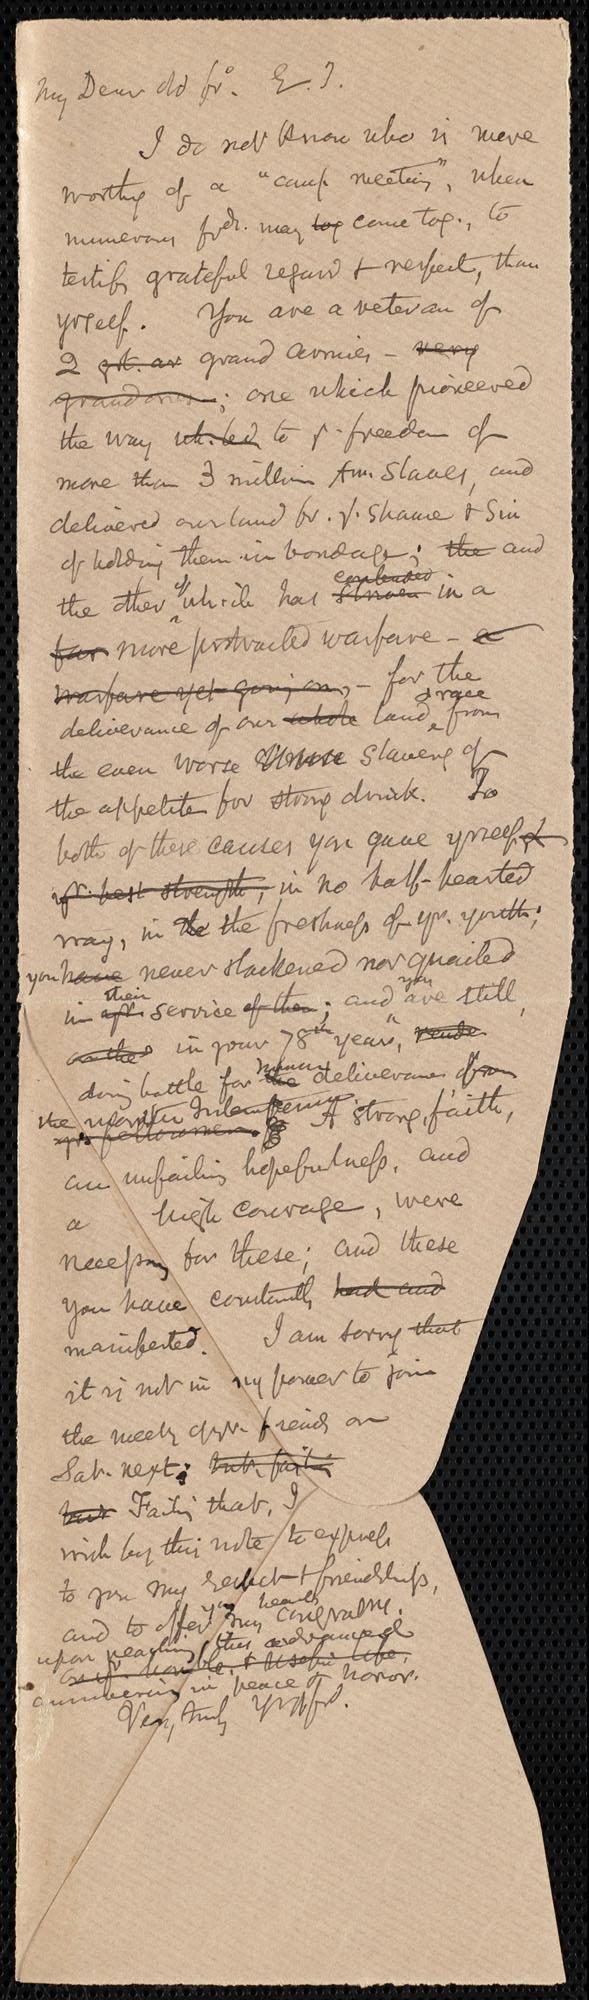 My Dear old fr^d. E. T.
I do not know who is more
worthy of a "camp meeting", when
numerous frds. may tog come tog., to
testify grateful regard & respect, than
yrself. You are a veteran of
2 grt. ar grand armies – very
grand ones; one which pioneered
the way wh. led to ye. freedom of
more than 3 million Am. Slaves, and
delivered our land fr. ye. Shame & Sin
of holding them in bondage; the and
the other of which has striven contended in a
far more protracted warfare – a
warfare yet going on, – for the
deliverance of our whole land & race from
the even worse slavery of
the appetite for strong drink. To
both of these causes you gave yrself, &
yr. best strength, in no half-hearted
way, in the the freshness of yr. youth;
you have never slackened nor quailed
in their service of them; and you are still,
in your 78th year,
doing battle for the human deliverance from
the monster Intemperance.
yr. fellowmen. A strong faith,
an unfailing hopefulness, and
a high courage, were
necessary for these; and these
you have constantly had and
manifested. I am sorry that
it is not in my power to join
the meeting of yr. friends on
Sat. next; but failing
but Failing that, I
wish by this note to express
to you my respect & friendship,
and to offer you my hearty congratns.
upon reaching this advanced
life,
in peace & honor.
Very truly Yr. old frd.